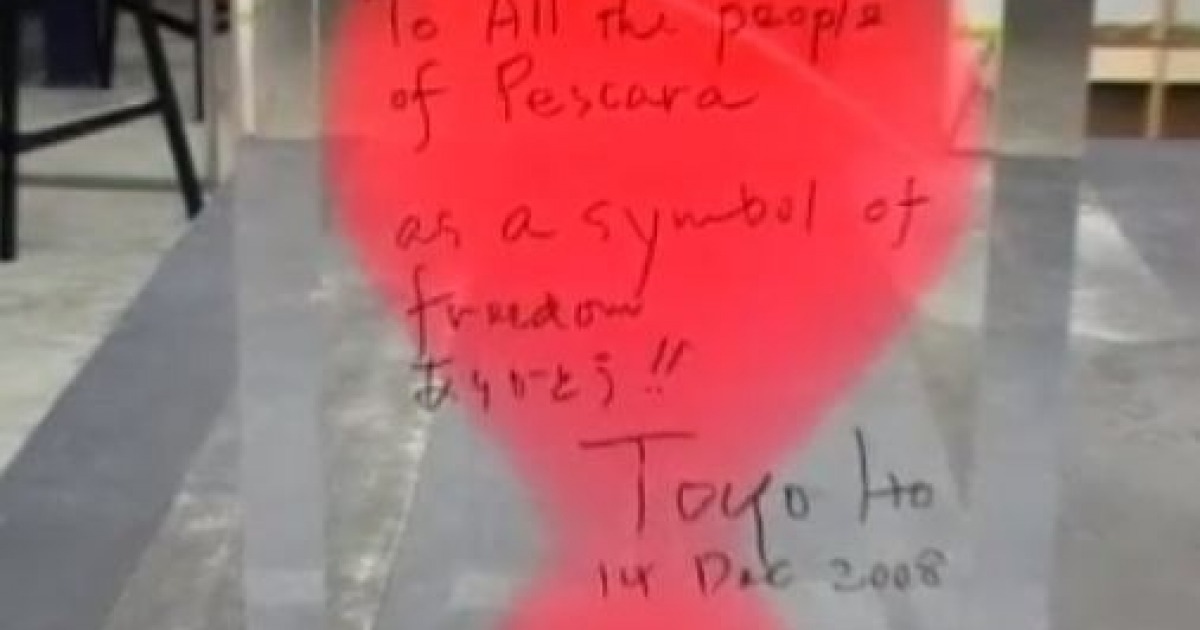 To All the people
of Pescara
as a symbol of
freedom
ありがとう!!
Toyo Ito
14 Dec 2008